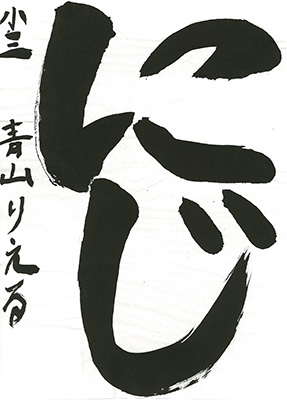 にじ
小三 青山りえる